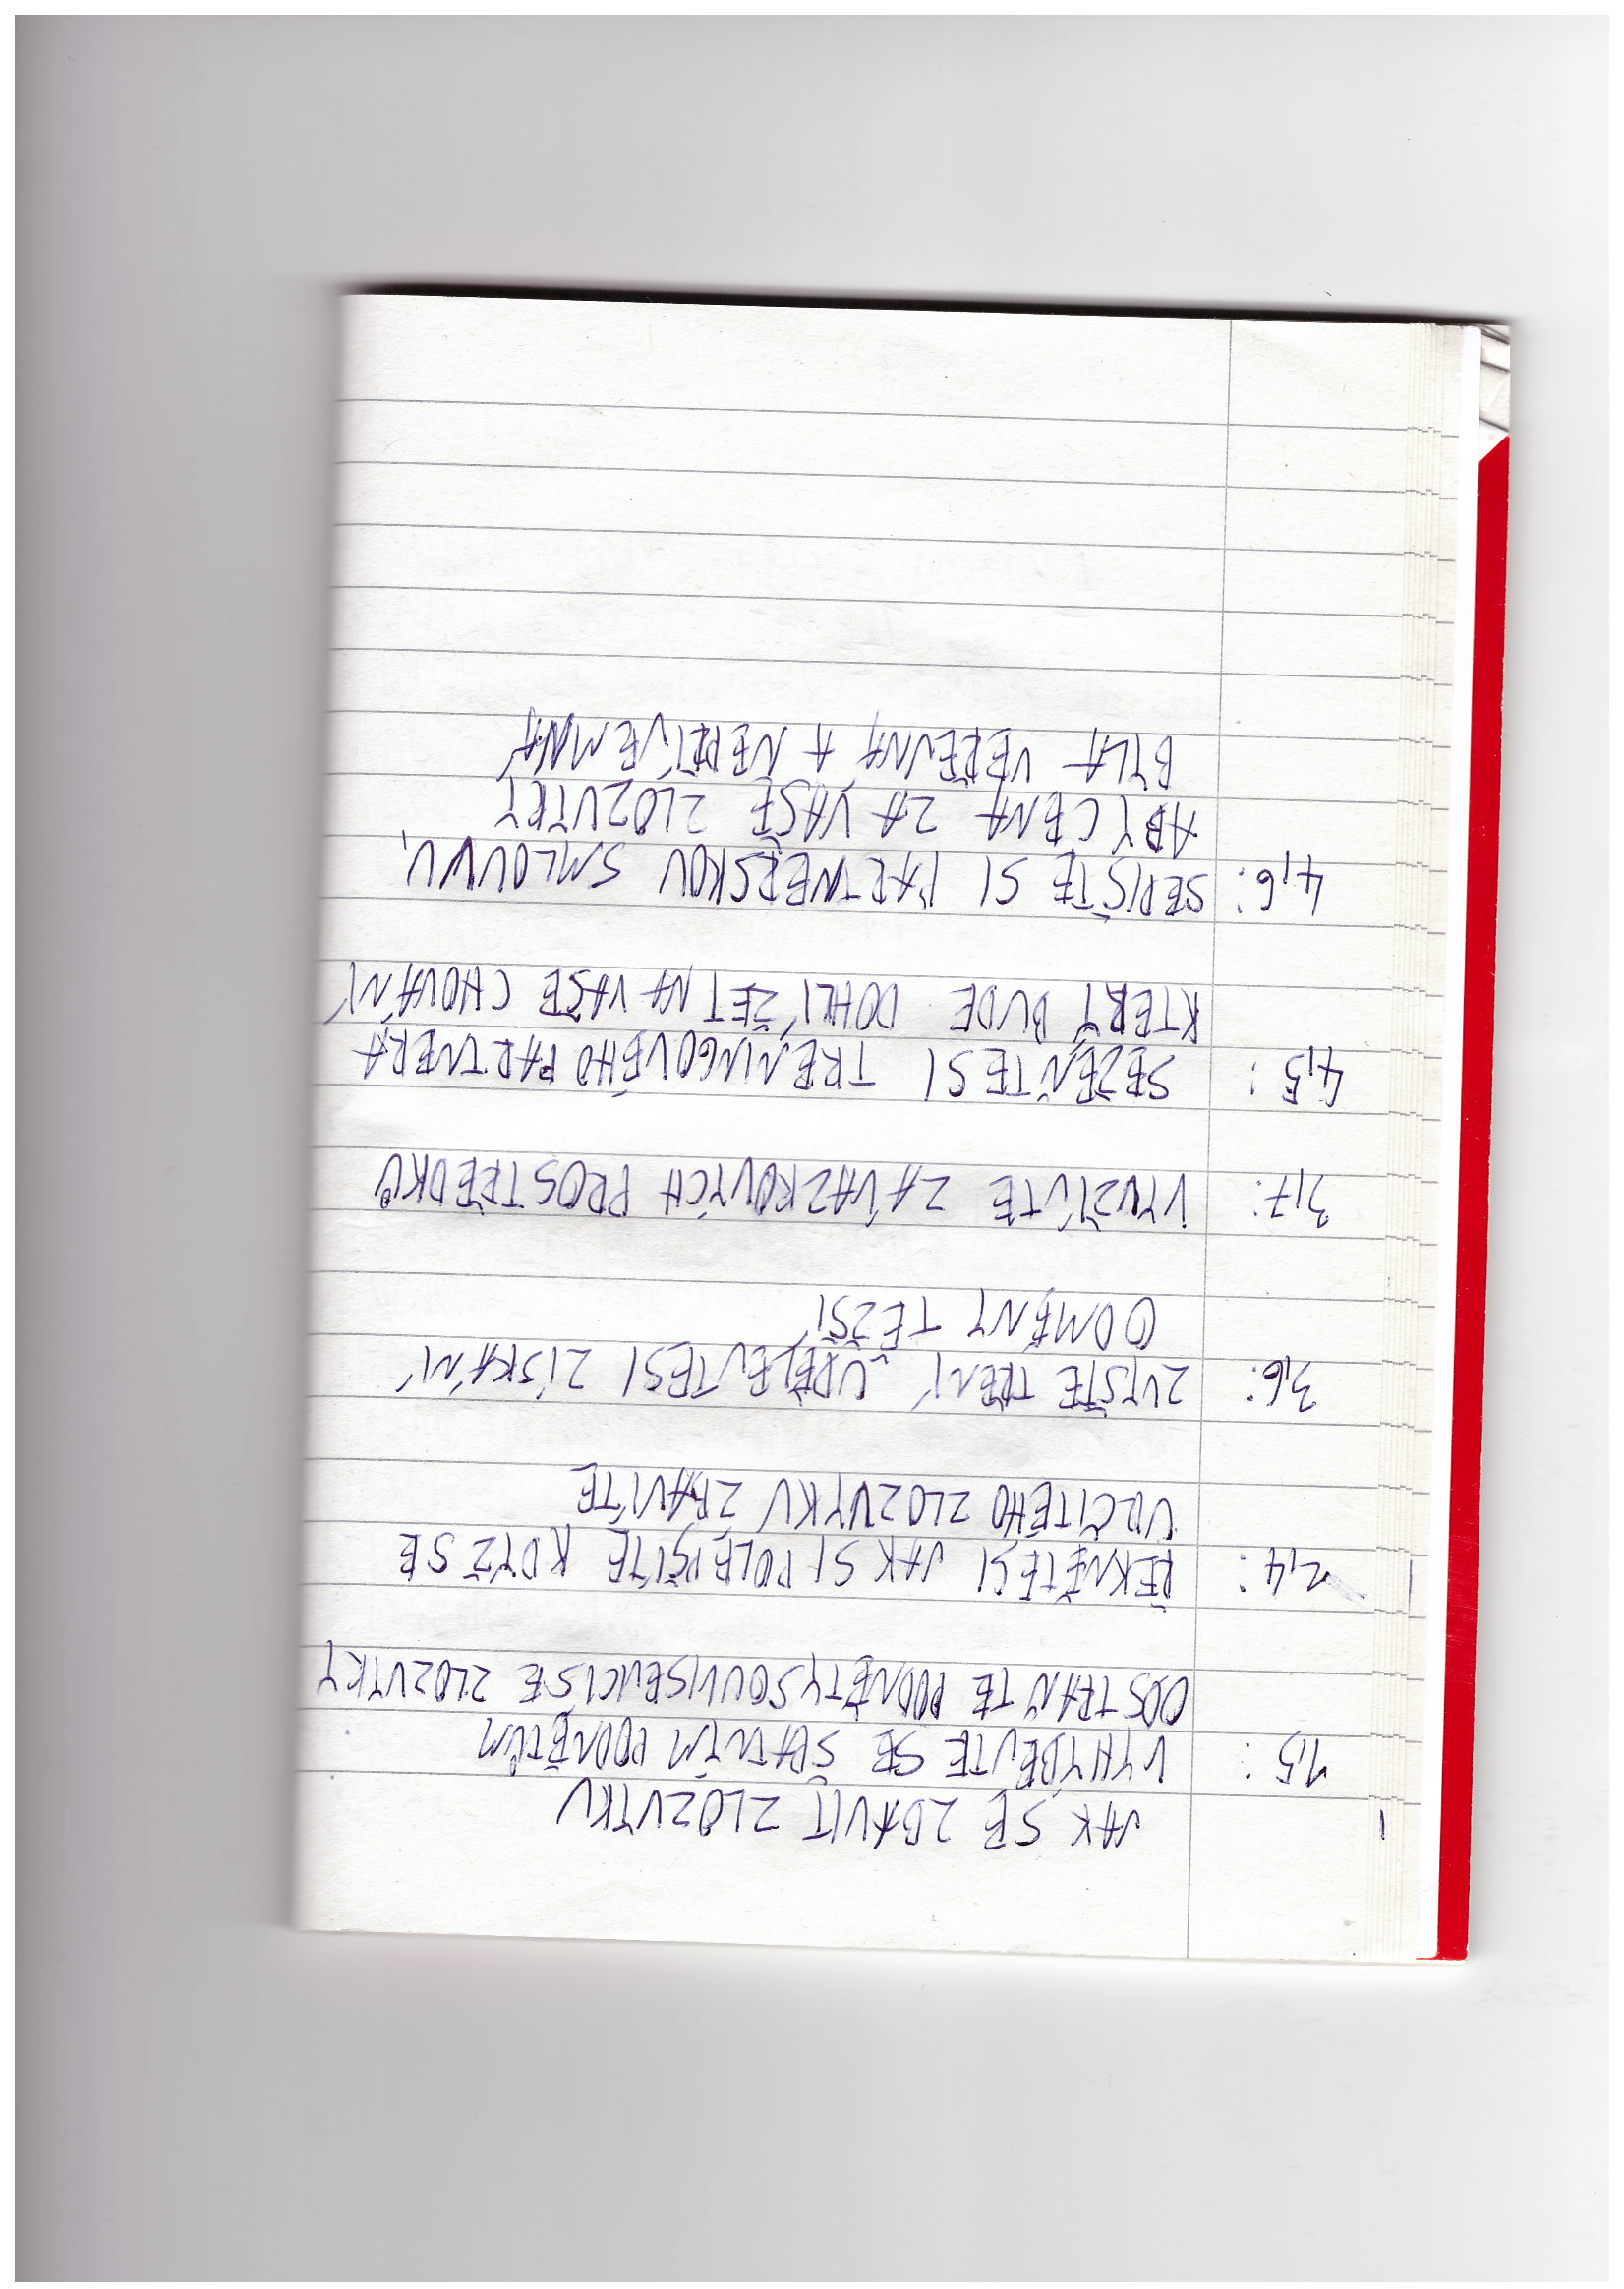 JAK SE ZBAVIT ZLOZVYKU
1,5: VYHÝBEJTE SE ŠPATNÝM PODNĚTŮM
ODSTRAŇTE PODNĚTY SOUVISEJICÍ SE ZLOZVYKY
2,4: ŘEKNĚTE SI JAK SI POLEPŠÍTE KDYŽ SE
URČITÉHO ZLOZVYKU ZBAVÍTE
3,6: ZVYŠTE TŘENÍ UDĚLEJTE SI ZÍSKÁNÍ
ODMĚNY TĚŽŠÍ
3,7: VYUŽÍJTE ZÁVAZKOVÝCH PROSTŘEDKŮ
4,5: SEŽEŇTE SI TRENINGOVÉHO PARTNERA
KTERÝ BUDE DOHLÍŽET NA VAŠE CHOVÁNÍ
4,6: SEPIŠTE SI PARTNERSKOU SMLOUVU,
ABY CENA ZA VAŠE ZLOZVYKY
BYLA VEŘEJNÁ A NEPŘÍJEMNÁ